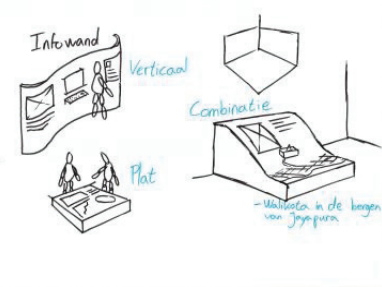 Infowand
Verticaal
Combinatie
Plat
- Walikota in de bergen
van Jayapura